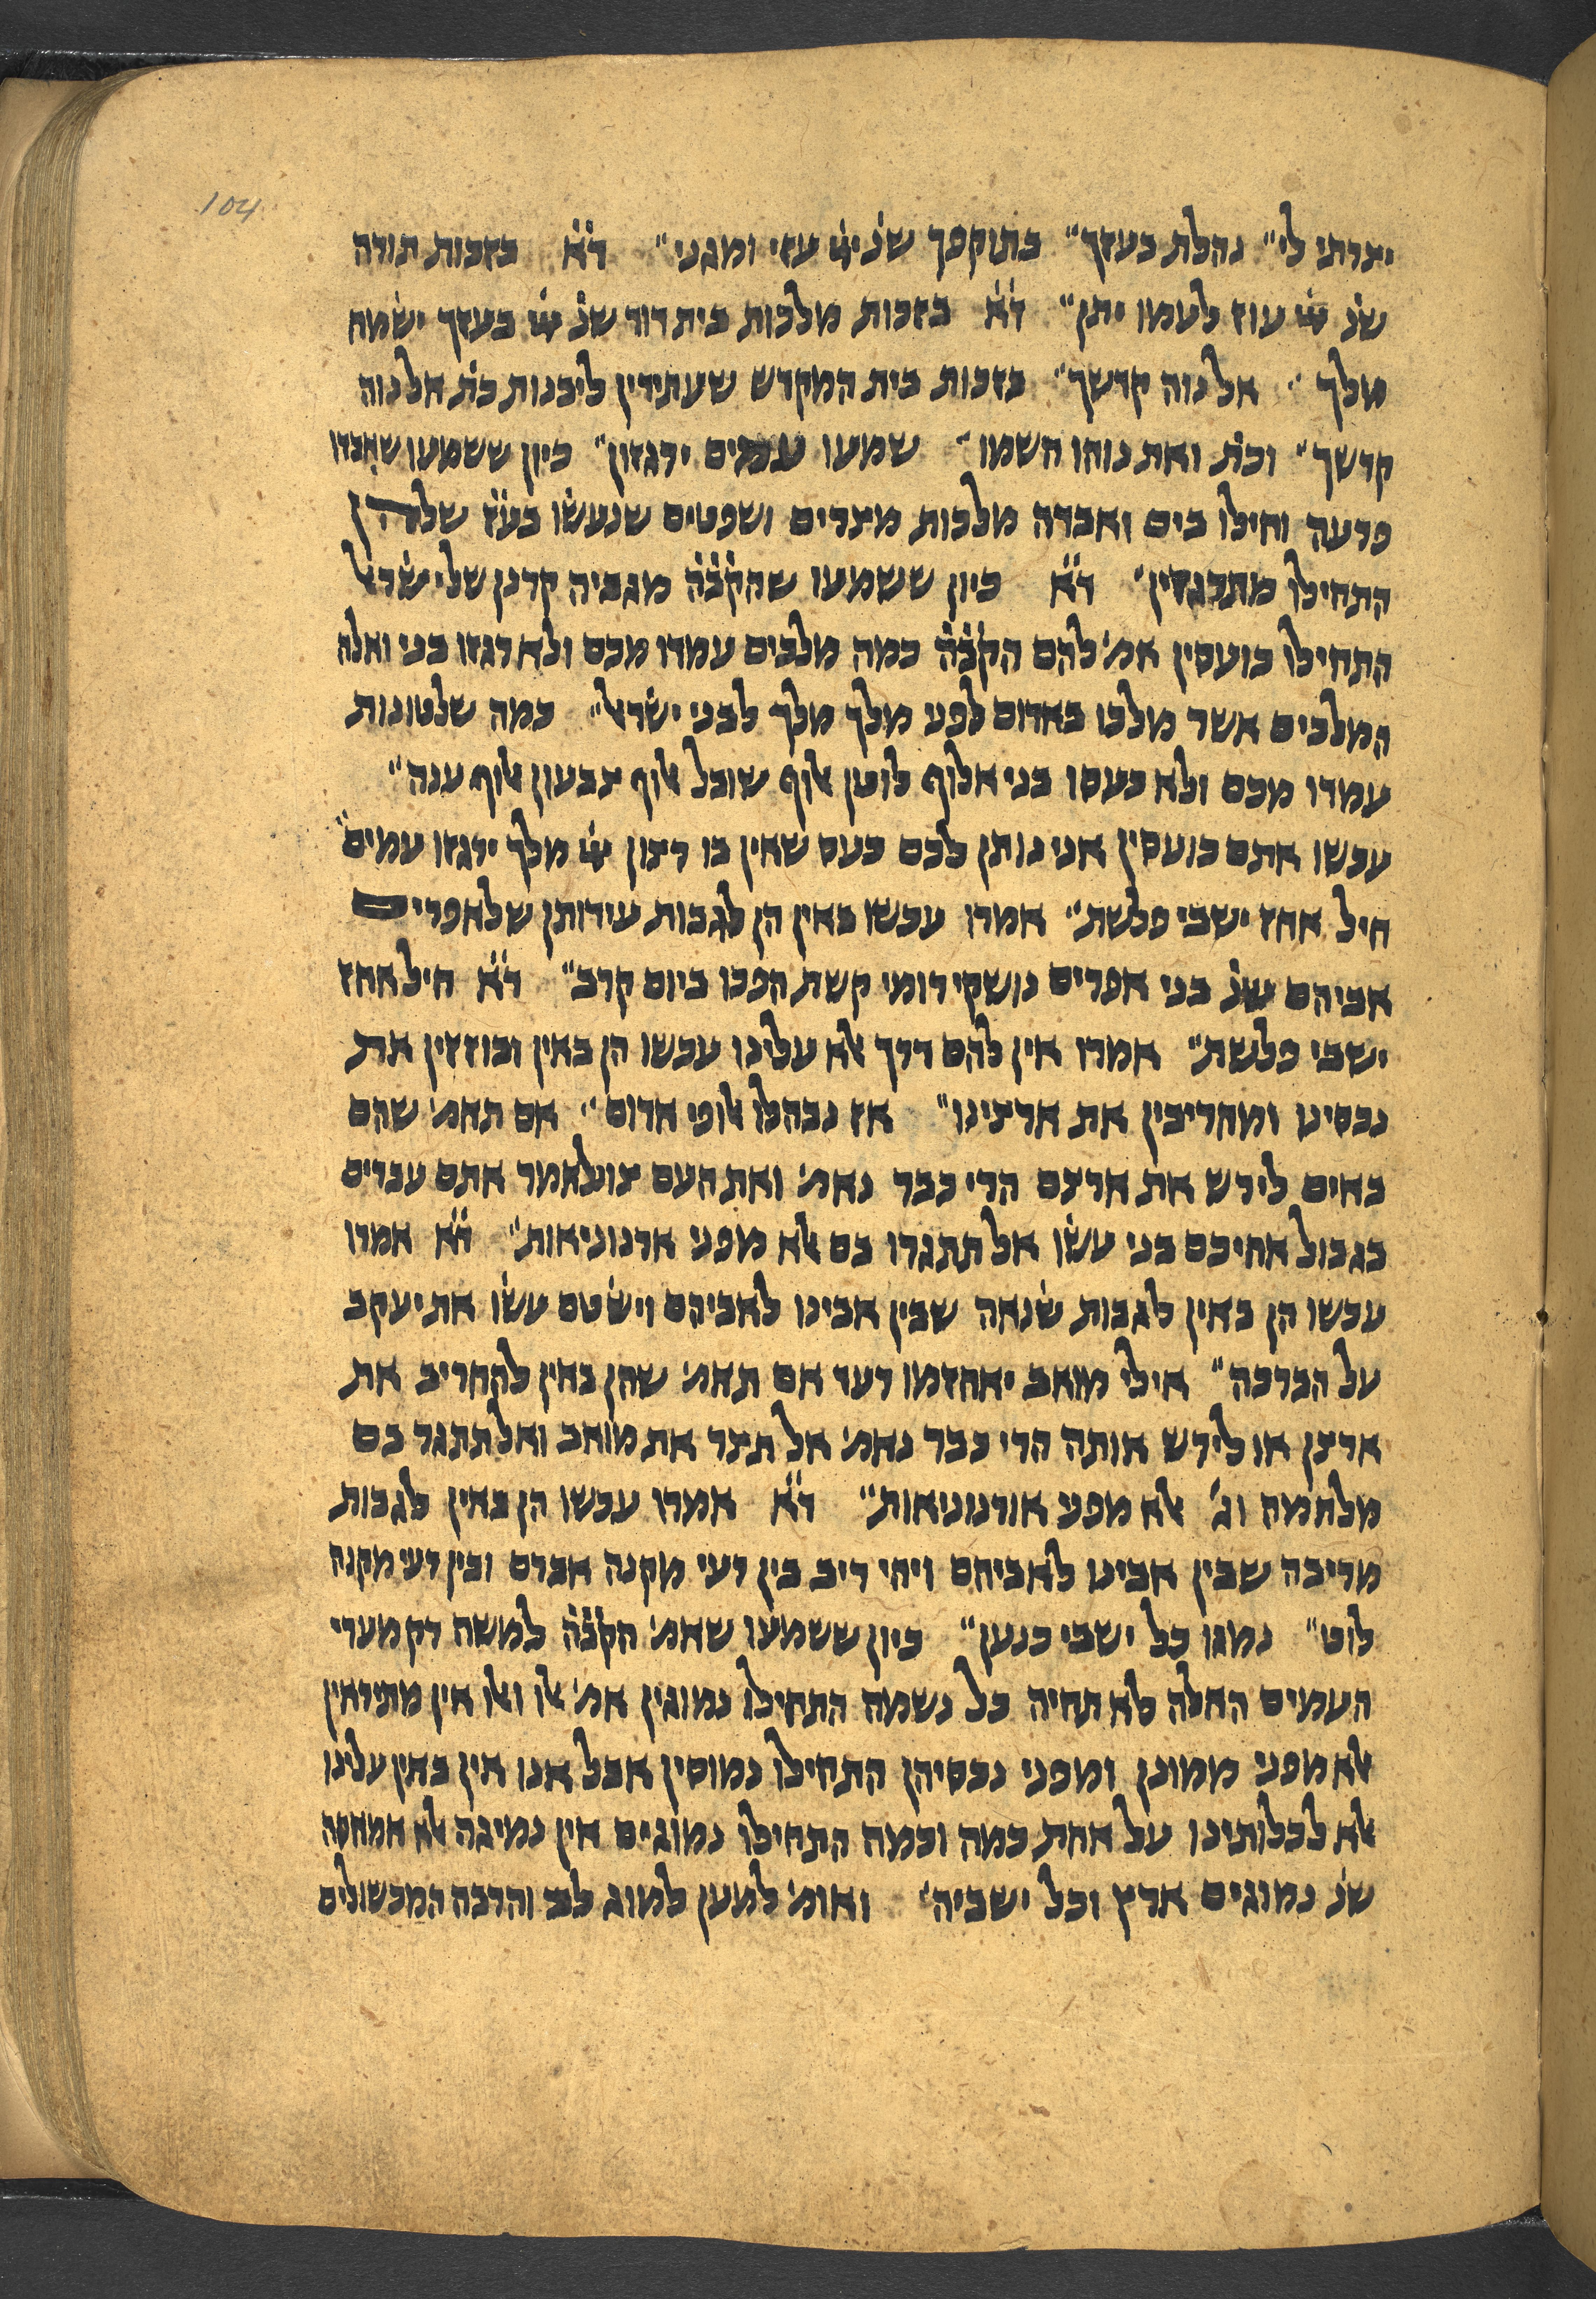 104
יצרתי לי״ נהלת בעזך״ בתוקפך שנ׳ ייי עזי ומגני״ ד״א בזכות תורה
שנ׳ ייי עוז לעמו יתן״ ד״א בזכות מלכות בית דוד שנ׳ ייי בעזך ישמח
מלך״ אל נוה קדשך״ בזכות בית המקדש שעתידין ליבנות כת׳ אל נוה
קדשך״ וכת׳ ואת נוהו השמו״ שמעו עמים ירגזון״ כיון ששמעו שאבדו
פרעה וחילו בים ואבדה מלכות מצרים ושפטים שנעשו בע״ז שלהן
התחילו מתרגזין״ ד״א כיון ששמעו שהקב״ה מגביה קרנן שלישראל
התחילו כועסין אמ׳ להם הקב״ה כמה מלכים עמדו מכם ולא רגזו בני ואלה
המלכים אשר מלכו באדום לפני מלך מלך לבני ישראל״ כמה שלטונות
עמדו מכם ולא כעסו בני אלוף לוטן אלוף שובל אלוף צבעון אלוף ענה״
עכשו אתם כועסין אני נותן לכם כעס שאין בו רצון ייי מלך ירגזו עמים״
חיל אחז ישבי פלשת״ אמרו עכשו באין הן לגבות עירותן שלאפרים
אביהם שנ׳ בני אפרים נושקי רומי קשת הפכו ביום קרב״ ד״א חיל אחז
ישבי פלשת״ אמרו אין להם דרך אלא עלינו עכשו הן באין ובוזזין את
נכסינו ומחריבין את ארצינו״ אז נבהלו אלופי אדום״ אם תאמ׳ שהם
באים לירש את ארצם הרי כבר נאמ׳ ואת העם צו לאמר אתם עברים
בגבול אחיכם בני עשו אל תתגרו בם אלא מפני ארנוניאות״ ד״א אמרו
עכשו הן באין לגבות שנאה שבין אבינו לאביהם וישטם עשו את יעקב
על הברכה״ אילי מואב יאחזמו רעד אם תאמ׳ שהן באין להחריב את
ארצן או לירש אותה הרי כבר נאמ׳ אל תצר את מואב ואל תתגר בם
מלחמה וג׳ אלא מפני אורנוניאות״ ד״א אמרו עכשו הן באין לגבות
מריבה שבין אבינו לאביהם ויהי ריב בין רעי מקנה אברם ובין רעי מקנה
לוט״ נמגו כל ישבי כנען״ כיון ששמעו שאמ׳ הקב״ה למשה רק מערי
העמים האלה לא תחיה כל נשמה התחילו נמוגין אמ׳ אלו ואלו אין מתיראין
אלא מפני ממונן ומפני נכסיהן התחילו נמוסין אבל אנו אין באין עלינו
אלא לכלותינו על אחת כמה וכמה התחילו נמוגים אין נמיגה אלא המחסה
שנ׳ נמוגים ארץ וכל ישביה״ ואומ׳ למען למוג לב והרבה המכשולים